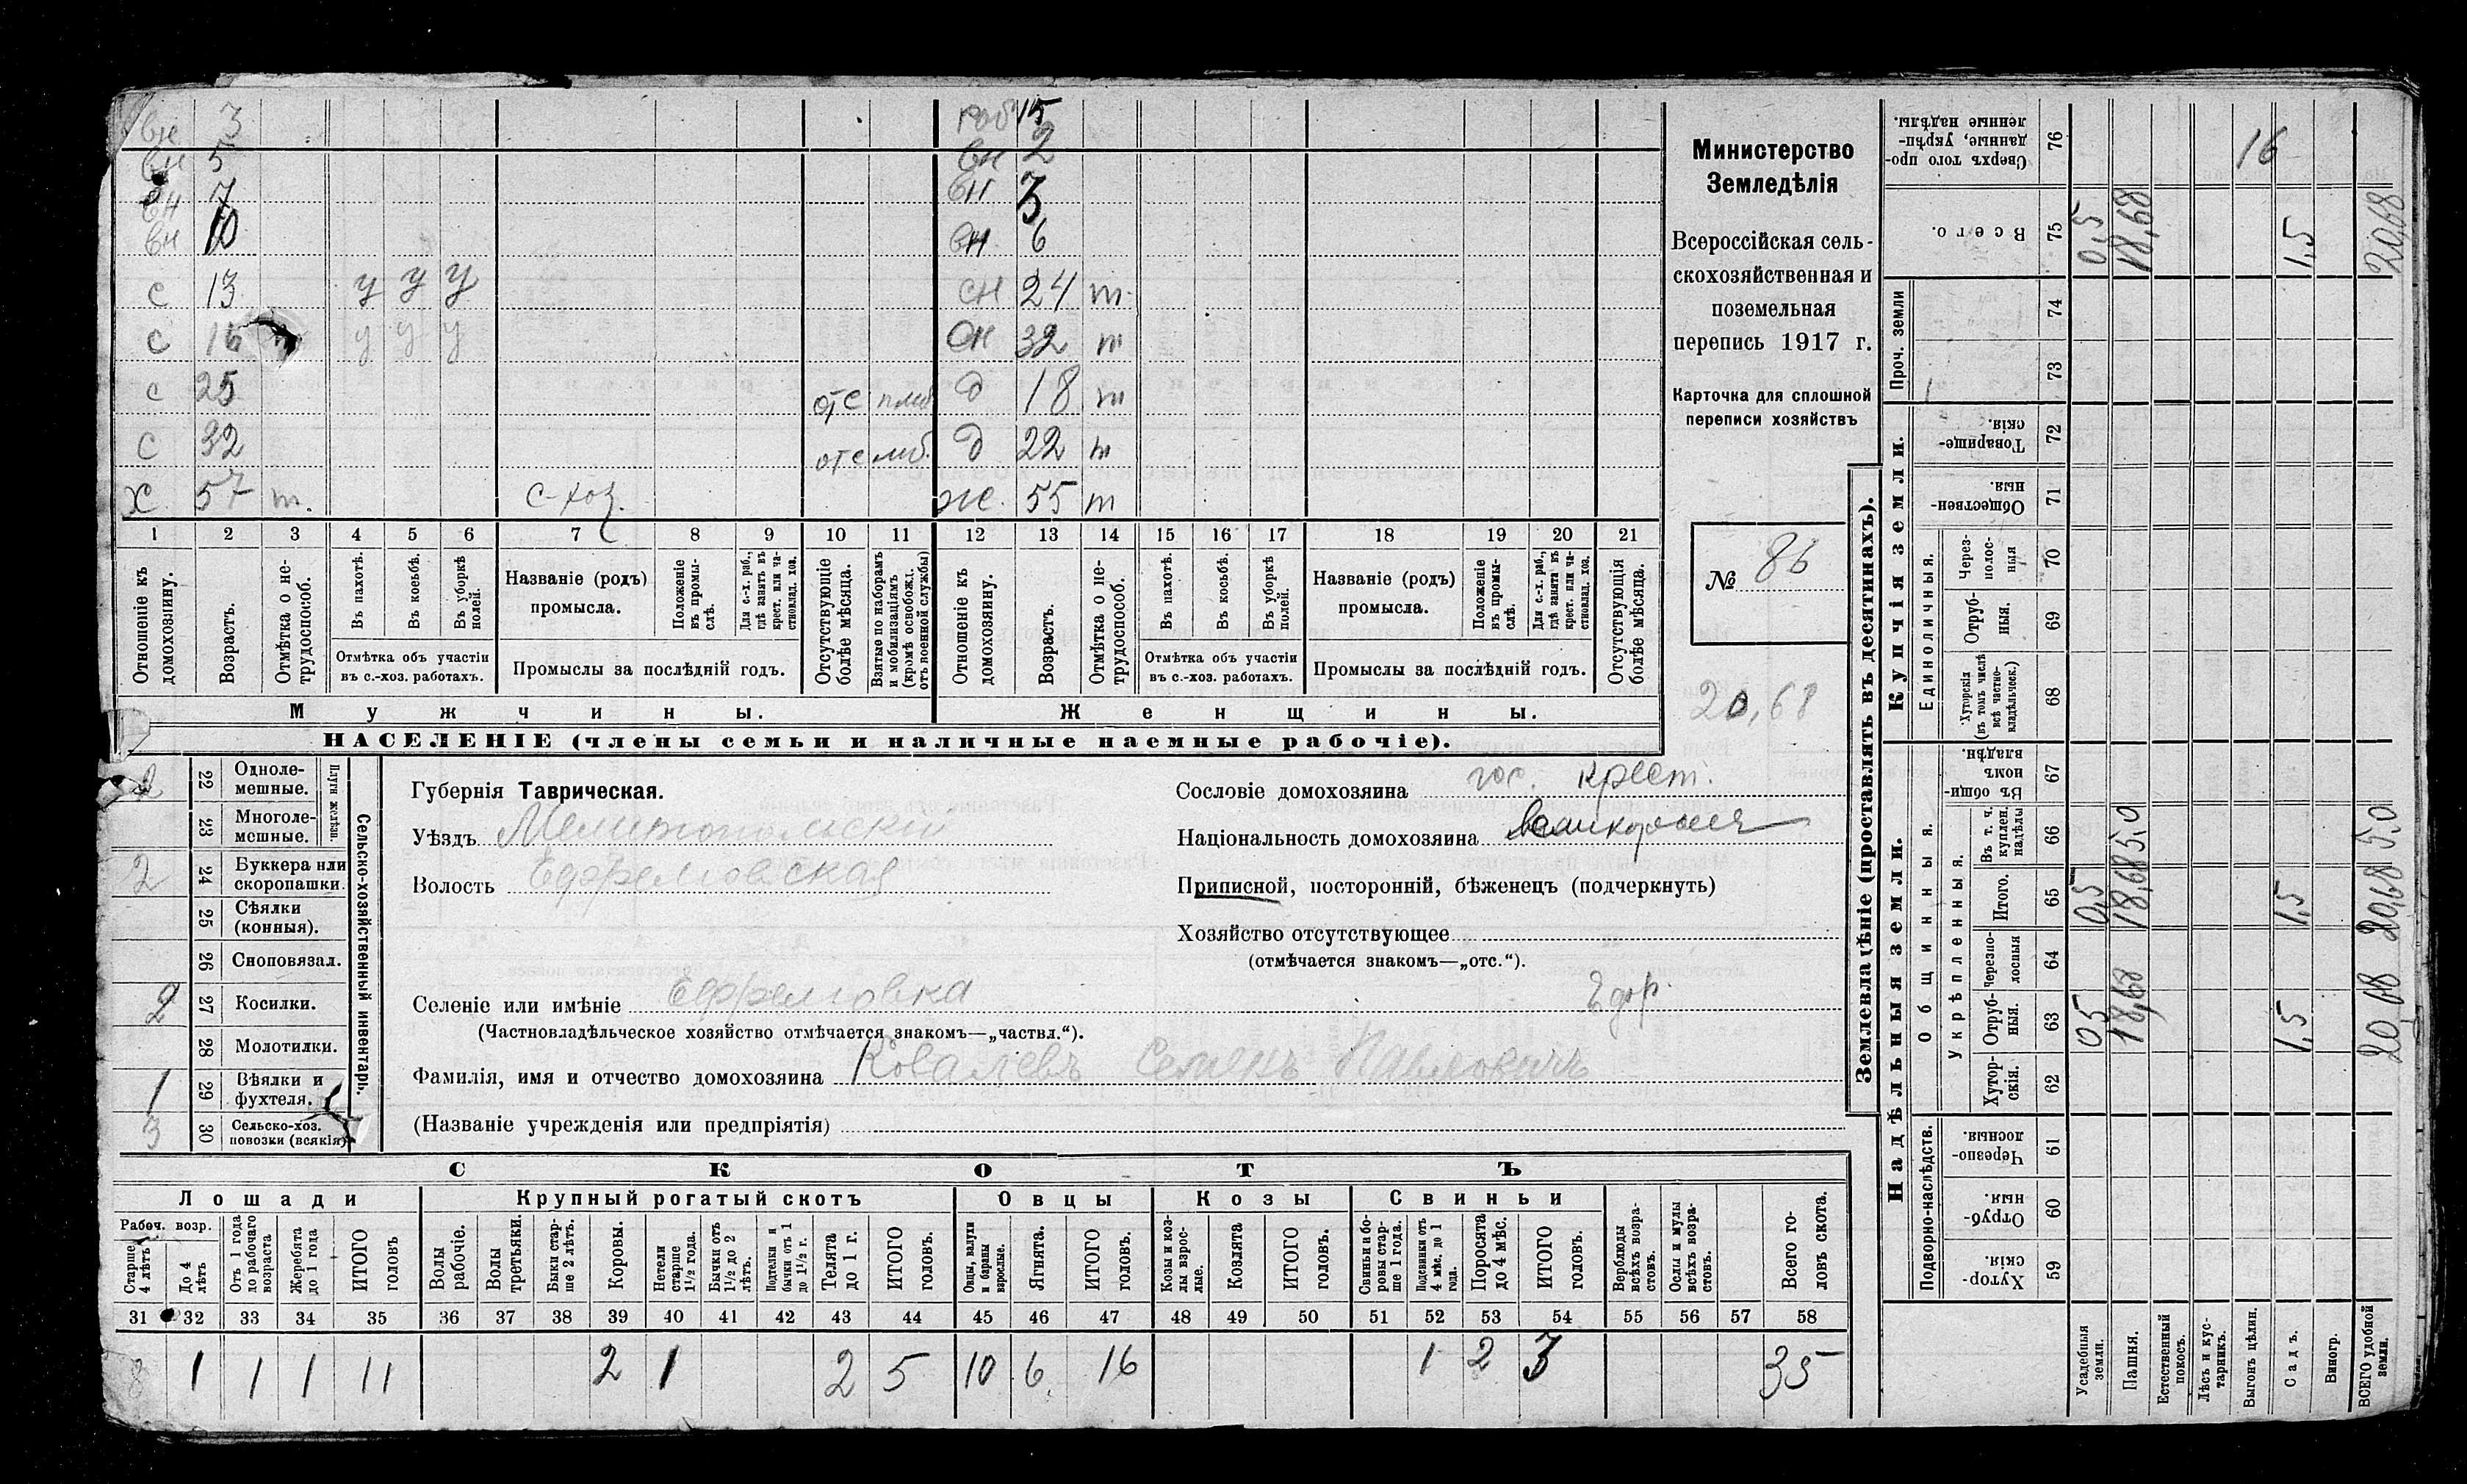 вн 3 раб 15
вн 5 вн 2
вн 7 вн 3
вн 10 вн 6
с 13 у у у сн 24 т
с 15 у у у сн 32 т
с 25 отс моб д 18 т
с 32 отс моб. д 22 т
х 57 т. с-хоз. ж. 55 т
1 2 3 4 5 6 7 8 9 10 11 12 13 14 15 16 17 18 19 20 21
Отношеніе къ домохозяину.
Возрастъ.
Отмѣтка о не-трудоспособ.
Въ пахотѣ.
Въ косьбѣ.
Въ уборкѣ полей.
Отмѣтка объ участіи
въ с.-хоз. работахъ.
Названіе (родъ)
промысла.
Положеніе въ промы-слѣ.
Для с.-х. раб., гдѣ занятъ въ крест. или ча-стновлад. хоз.
Промыслы за послѣдній годъ.
Отсутствующіе болѣе мѣсяца.
Взятые по наборамъ и мобилизаціямъ (кромѣ освобожд. отъ военной службы)
Отношеніе къ домохозяину.
Возрастъ.
Отмѣтка о не-трудоспособ.
Въ пахотѣ.
Въ косьбѣ.
Въ уборкѣ полей.
Отмѣтка объ участіи
въ с.-хоз. работахъ.
Названіе (родъ)
промысла.
Положеніе въ промы-слѣ.
Для с.-х. раб., гдѣ занята въ крест. или ча-стновлад. хоз.
Промыслы за послѣдній годъ.
Отсутствующія болѣе мѣсяца.
Мужчины. Женщины.
НАСЕЛЕНІЕ (члены семьи и наличные наемные рабочіе).
Министерство
Земледѣлія
Всероссійская сель-
скохозяйственная и
поземельная
перепись 1917 г.
Карточка для сплошной
переписи хозяйствъ
№ 86
20,68
Губернія Таврическая.
Уѣздъ Мелитопольскій
Волость Ефремовская
Сословіе домохозяина гос. крест.
Національность домохозяина великороссъ
Приписной, посторонній, бѣженецъ (подчеркнуть)
Хозяйство отсутствующее
(отмѣчается знакомъ—„отс.“).
Селеніе или имѣніе Ефремовка
(Частновладѣльческое хозяйство отмѣчается знакомъ—„частвл.“).
Фамилія, имя и отчество домохозяина Ковалевъ Семенъ Павловичъ
(Названіе учрежденія или предпріятія)
Сельско-хозяйственный инвентарь.
Плуги желѣзн.
2 22 Одноле-мешные.
23 Многоле-мешные.
2 24 Буккера или скоропашки.
25 Сѣялки (конныя).
26 Сноповязал.
2 27 Косилки.
28 Молотилки.
1 29 Вѣялки и фухтеля.
3 30 Сельско-хоз. повозки (всякія)
СКОТЪ
Лошади Крупный рогатый скотъ Овцы Козы Свиньи
Рабоч. возр.
Старше 4 лѣтъ
До 4 лѣтъ
Отъ 1 года до рабочаго возраста
Жеребята до 1 года
ИТОГО головъ
Волы рабочіе.
Волы третьяки.
Быки стар-ше 2 лѣтъ.
Коровы.
Нетели старше 1½ года.
Бычки отъ 1½ до 2 лѣтъ.
Подтелки и бычки отъ 1 до 1½ г.
Телята до 1 г.
ИТОГО головъ.
Овцы, валухи и бараны взрослые.
Ягнята.
ИТОГО головъ.
Козы и коз-лы взрос-лые.
Козлята
ИТОГО головъ.
Свиньи и бо-ровы стар-ше 1 года.
Подсвинки отъ 4 мѣс. до 1 года.
Поросята до 4 мѣс.
ИТОГО головъ.
Верблюды всѣхъ возра-стовъ.
Ослы и мулы всѣхъ возра-стовъ.
Всего го-ловъ скота.
31 32 33 34 35 36 37 38 39 40 41 42 43 44 45 46 47 48 49 50 51 52 53 54 55 56 57 58
8 1 1 1 11 2 1 2 5 10 6 16 1 2 3 35
Землевладѣніе (проставлять въ десятинахъ).
Надѣльныя земли.
Купчія земли.
Проч. земли
Подворно-наслѣдств.
Общинныя.
Укрѣпленныя.
Единоличныя.
Сверхъ того про-данные, укрѣп-ленные надѣлы. 76 16
Всего. 75 0,5 18,68 1,5 20,68
74
73
Товарище-скія 72
Обществен-ныя 71
Через-полос-ныя 70
Отруб-ныя. 69
Хуторскія (въ томъ числѣ всѣ частно-владѣльческ.) 68
Въ общи-номъ владѣн. 67
Въ т. ч. куплен. надѣлы 66 5,0 5,0
Итого. 65 0,5 18,68 1,5 20,68
Черезпо-лосныя 64
Отруб-ныя. 63 05 18,68 1,5 20,68
Хутор-скія. 62
Черезпо-лосныя. 61
Отруб-ныя. 60
Хутор-скія. 59
Усадебныя земли.
Пашня.
Естественный покосъ.
Лѣсъ и кус-тарникъ.
Выгонъ цѣлин.
Садъ.
Виногр.
ВСЕГО удобной земли.